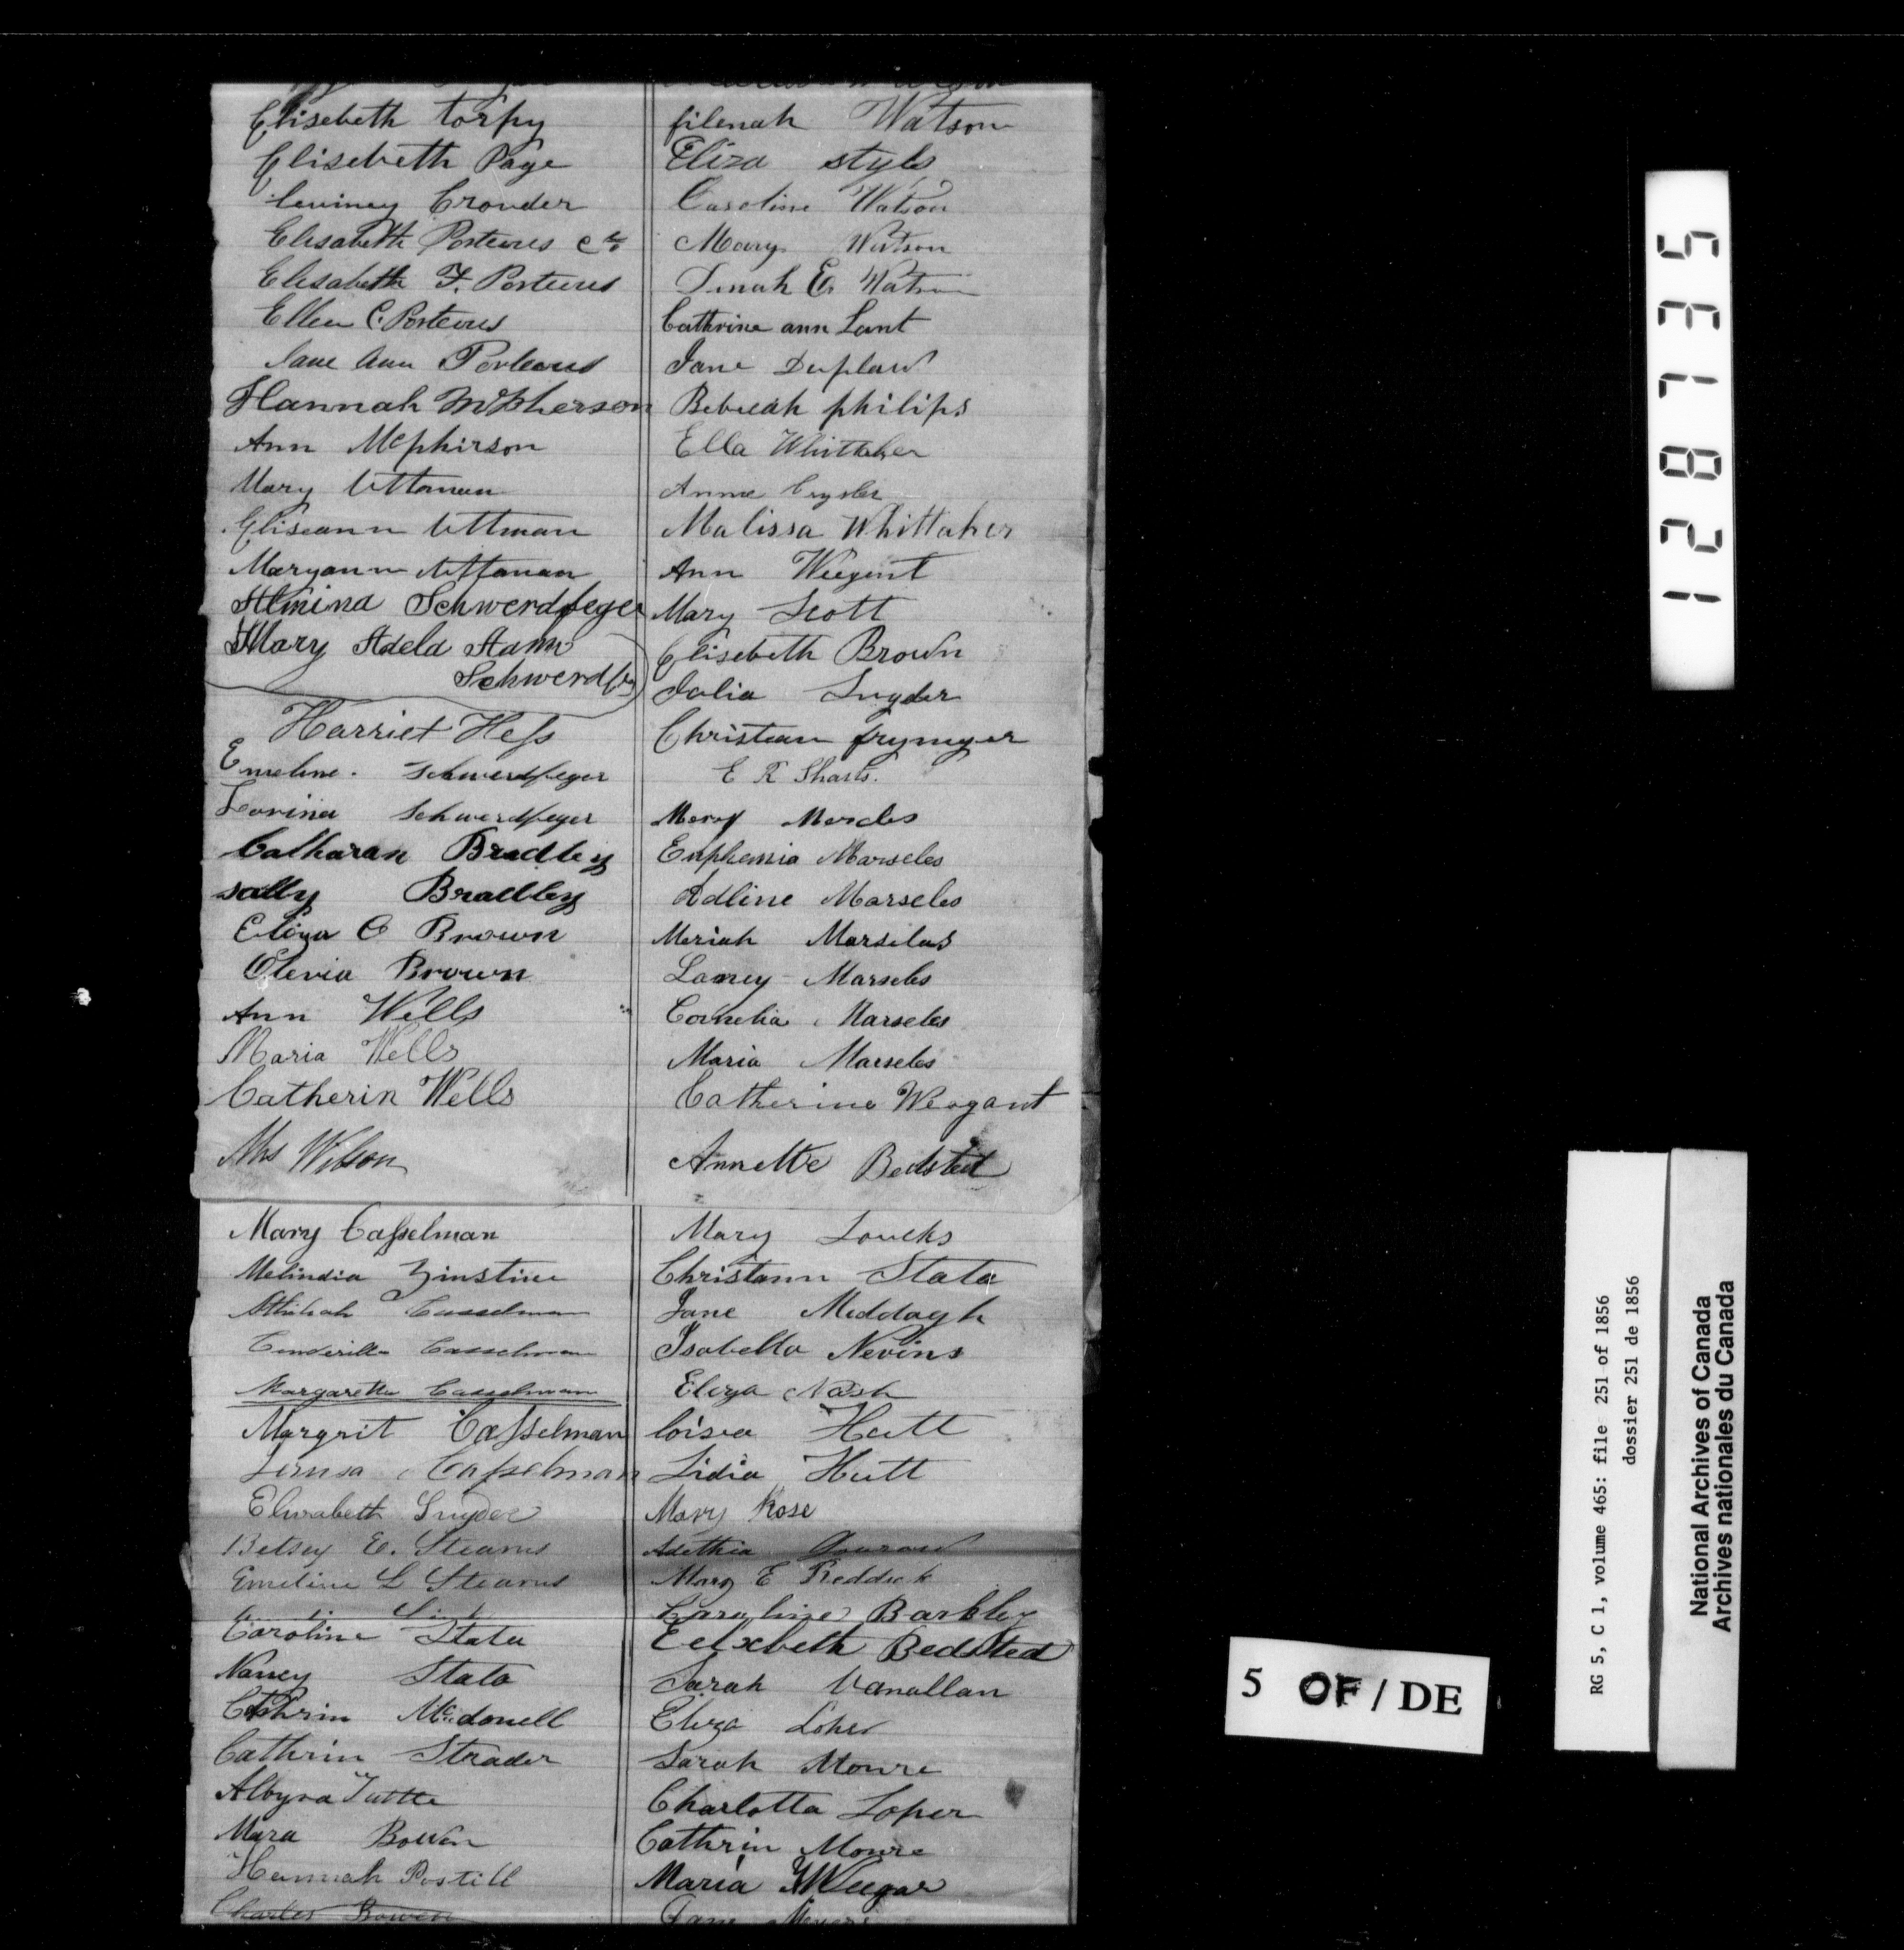 Elisebeth torpy
Elisebeth Page
Leviney Crouder
Elisabeth Porteous
Elisabeth F. Porteous
Ellen C. Porteous
Jane Ann Porteous
Hannah McPherson
Ann Mcphirson
Mary Uttoman
Eliseann Uttman
Maryann
Almina Schwerdfeger
Mary Adela Aann
Schwerdfeger
Harriet Hess
Emeline. Schwerdfeger
Lovina Schwerdfeger
Catharan Bradley
sally Bradley
Eliza C Brown
Olevia Brown
Ann Wells
Maria Wells
Catherin Wells
Mrs Wilson
Mary Casselman
Melindia
Casselman
Cinderilla Casselman
Margaretta Casselman
Margrit Casselman
Jerusa Casselman
Elizabeth Snyder
Betsey E. Stearns
Emeline L Stearns
Caroline Stata
Nancy Stata
Cathrin McDonell
Cathrin Strader
Albyra Tuttle
Mara Bowen
Hannah Postill
Charles Bowen
filenah Watson
Eliza style
Caroline Watson
Mary Watson
Dinah E. Watson
Cathrine ann Lant
Jane Duplaw
philips
Ella Whittaker
Anna Crysler
Malissa Whittaker
Ann Weegent
Mary Scott
Elisebeth Brown
Julia Snyder
Christean frymeyer
E R Sharts.
Mary
Euphemia Marseles
Adline Marseles
Meriah Marselas
Laney Marseles
Cornelia Marseles
Maria Marseles
Catherine Weagant
Annette Bedsted
Mary Loucks
Christann Stata
Jane Meddaugh
Isabella Nevins
Eliza Nash
Loisea Hutt
Lidia Hutt
Mary Rose
Mary E Reddick
Caroline Barkley
Bedsted
Sarah Vanallan
Eliza
Sarah Monre
Charlotta Loper
Cathrin Monre
Maria Weegar
Jane Meyers
128735
5 OF / DE
RG 5, C 1, volume 465: file 251 of 1856
dossier 251 de 1856
National Archives of Canada
Archives nationales du Canada